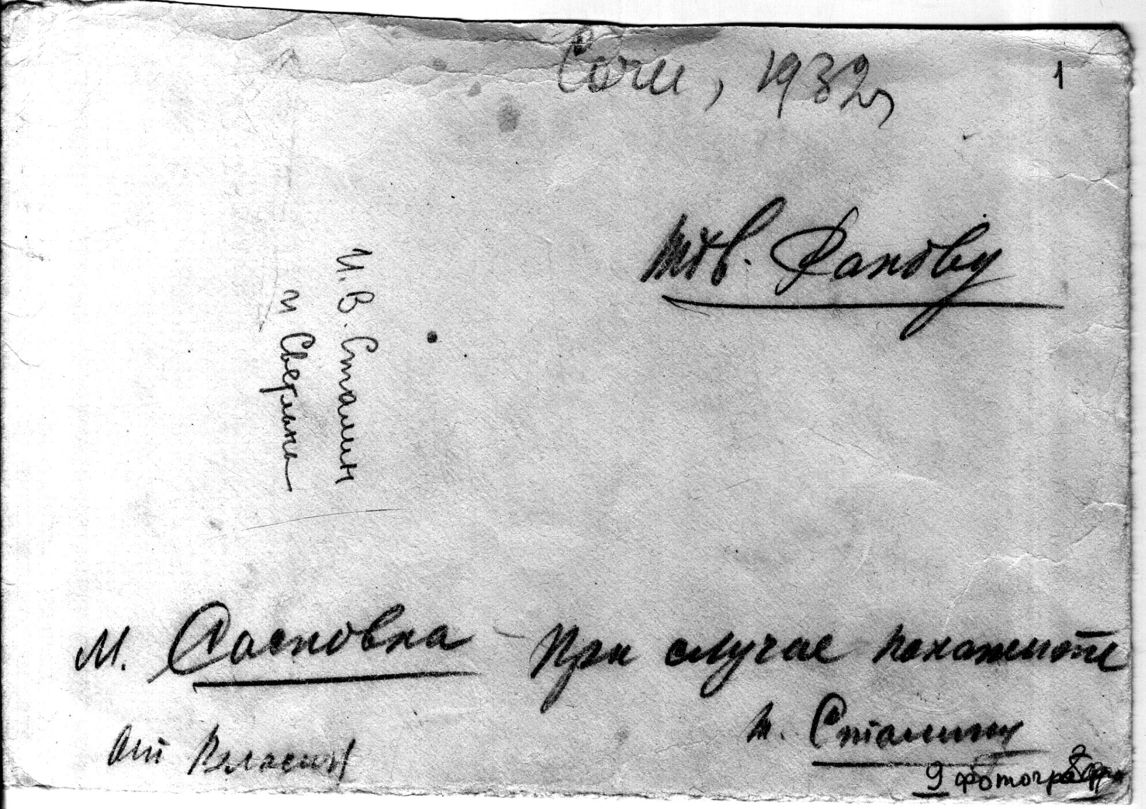 Сочи, 1932 г
1
тов. Фанову
И. В. Сталин
и Светлана
м. Сосновка – При случае покажите
т. Сталину
от Власика
9 фотограф